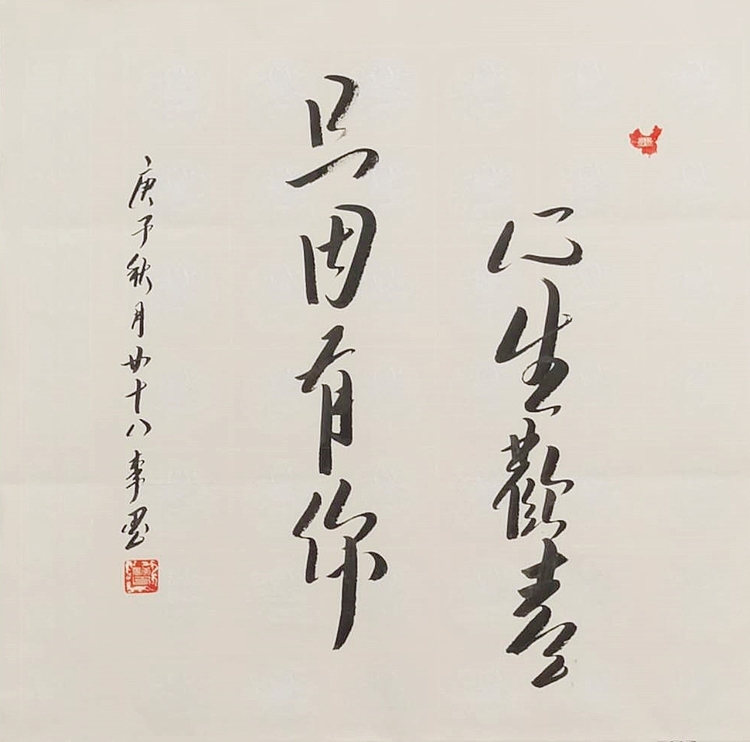 心生歡喜
只因有你
庚子秋月廿十八事墨